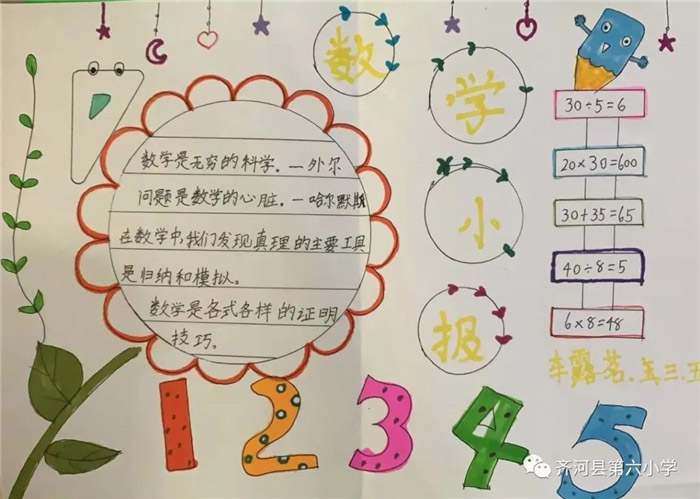 数学小报
数学是无穷的科学。一外尔
问题是数学的心脏。一哈尔默斯
在数学中,我们发现真理的主要工具
是归纳和模拟。
数学是各式各样的证明
技巧。
30÷5=6
20×30=600
30+35=65
40÷8=5
6×8=48
1 2 3 4 5
齐河县第六小学